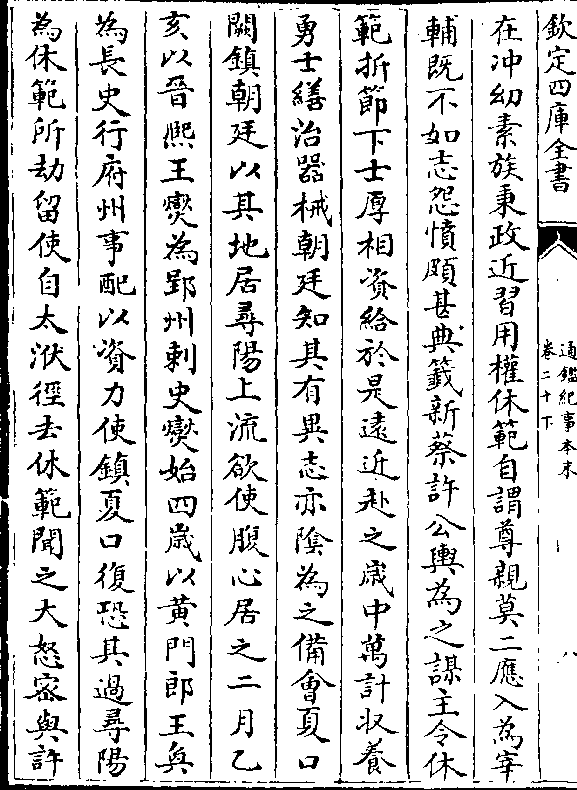 欽定四庫全書
通鑑紀事本末
卷二十下
八
在冲幼素族秉政近習用權休範自謂尊親莫二應入為宰
輔既不如志怨憤頗甚典籖新蔡許公輿為之謀主令休
範折節下士厚相資給於是遠近赴之嵗中萬計収養
勇士繕治器械朝廷知其有異志亦陰為之備會夏口
闕鎮朝廷以其地居尋陽上流欲使腹心居之二月乙
亥以晉熙王爕為郢州刺史爕始四嵗以黄門郎王奐
為長史行府州事配以資力使鎮夏口復恐其過尋陽
為休範所劫留使自太洑徑去休範聞之大怒密與許